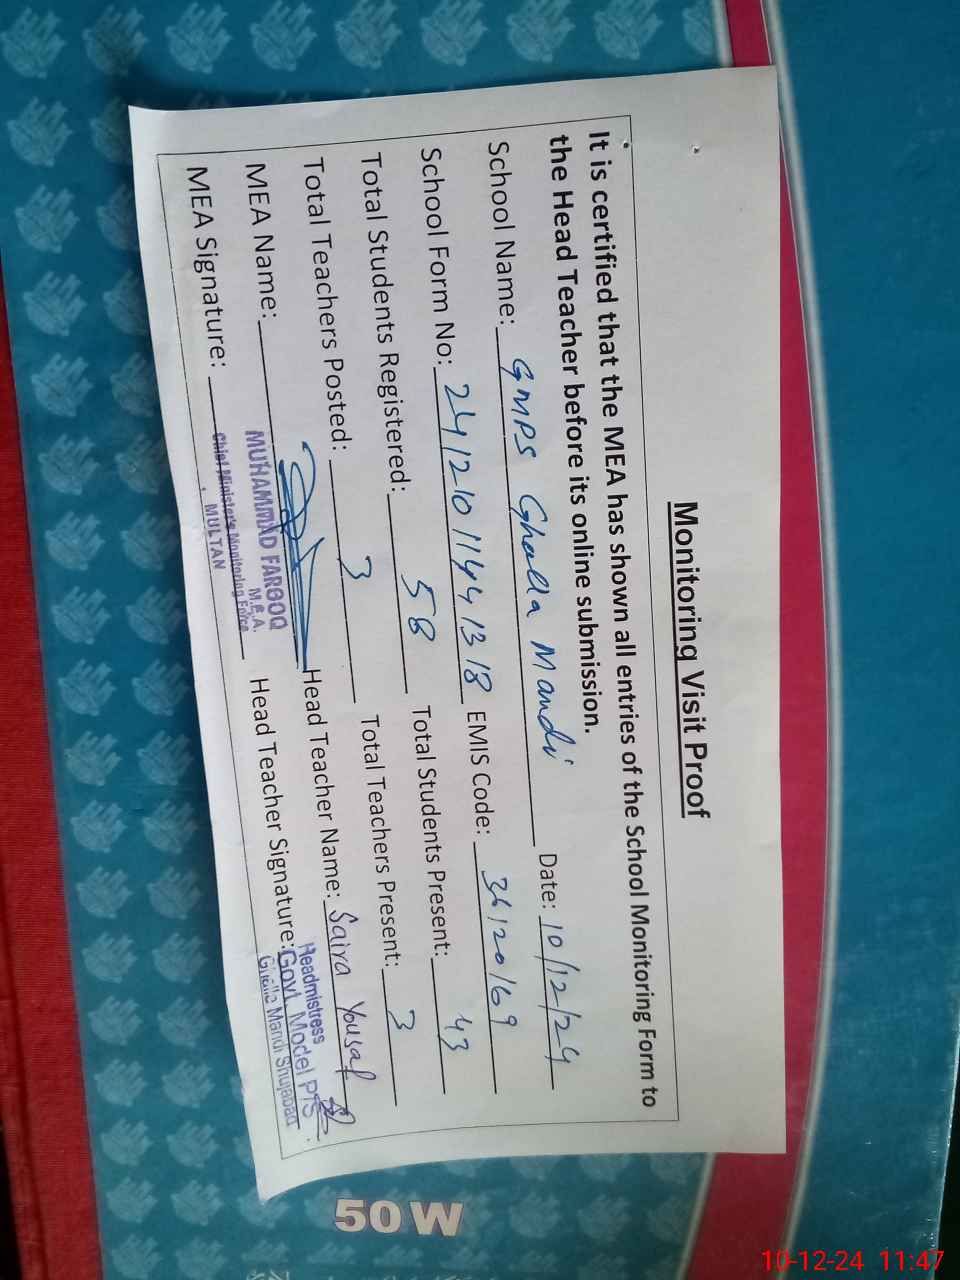 Monitoring Visit Proof
It is certified that the MEA has shown all entries of the School Monitoring Form to
the Head Teacher before its online submission.
School Name: GMPS Ghalla Mandi Date: 10/12/24
School Form No: 24121011441318 EMIS Code: 36120169
Total Students Registered: 58 Total Students Present: 43
Total Teachers Posted: 3 Total Teachers Present: 3
MEA Name: Head Teacher Name: Saira Yousaf
MUHAMMAD FAROOQ
M.E.A.
Chief Minister's Monitoring Force
MULTAN
MEA Signature: Head Teacher Signature:
Headmistress
Govt. Model P/S
Ghalla Mandi Shujabad
50 W
10-12-24 11:47